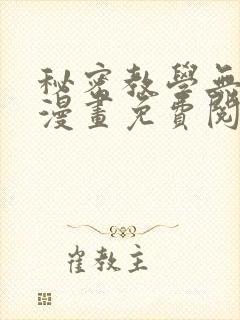 秘密教學無
漫畫免費閱
崔教主